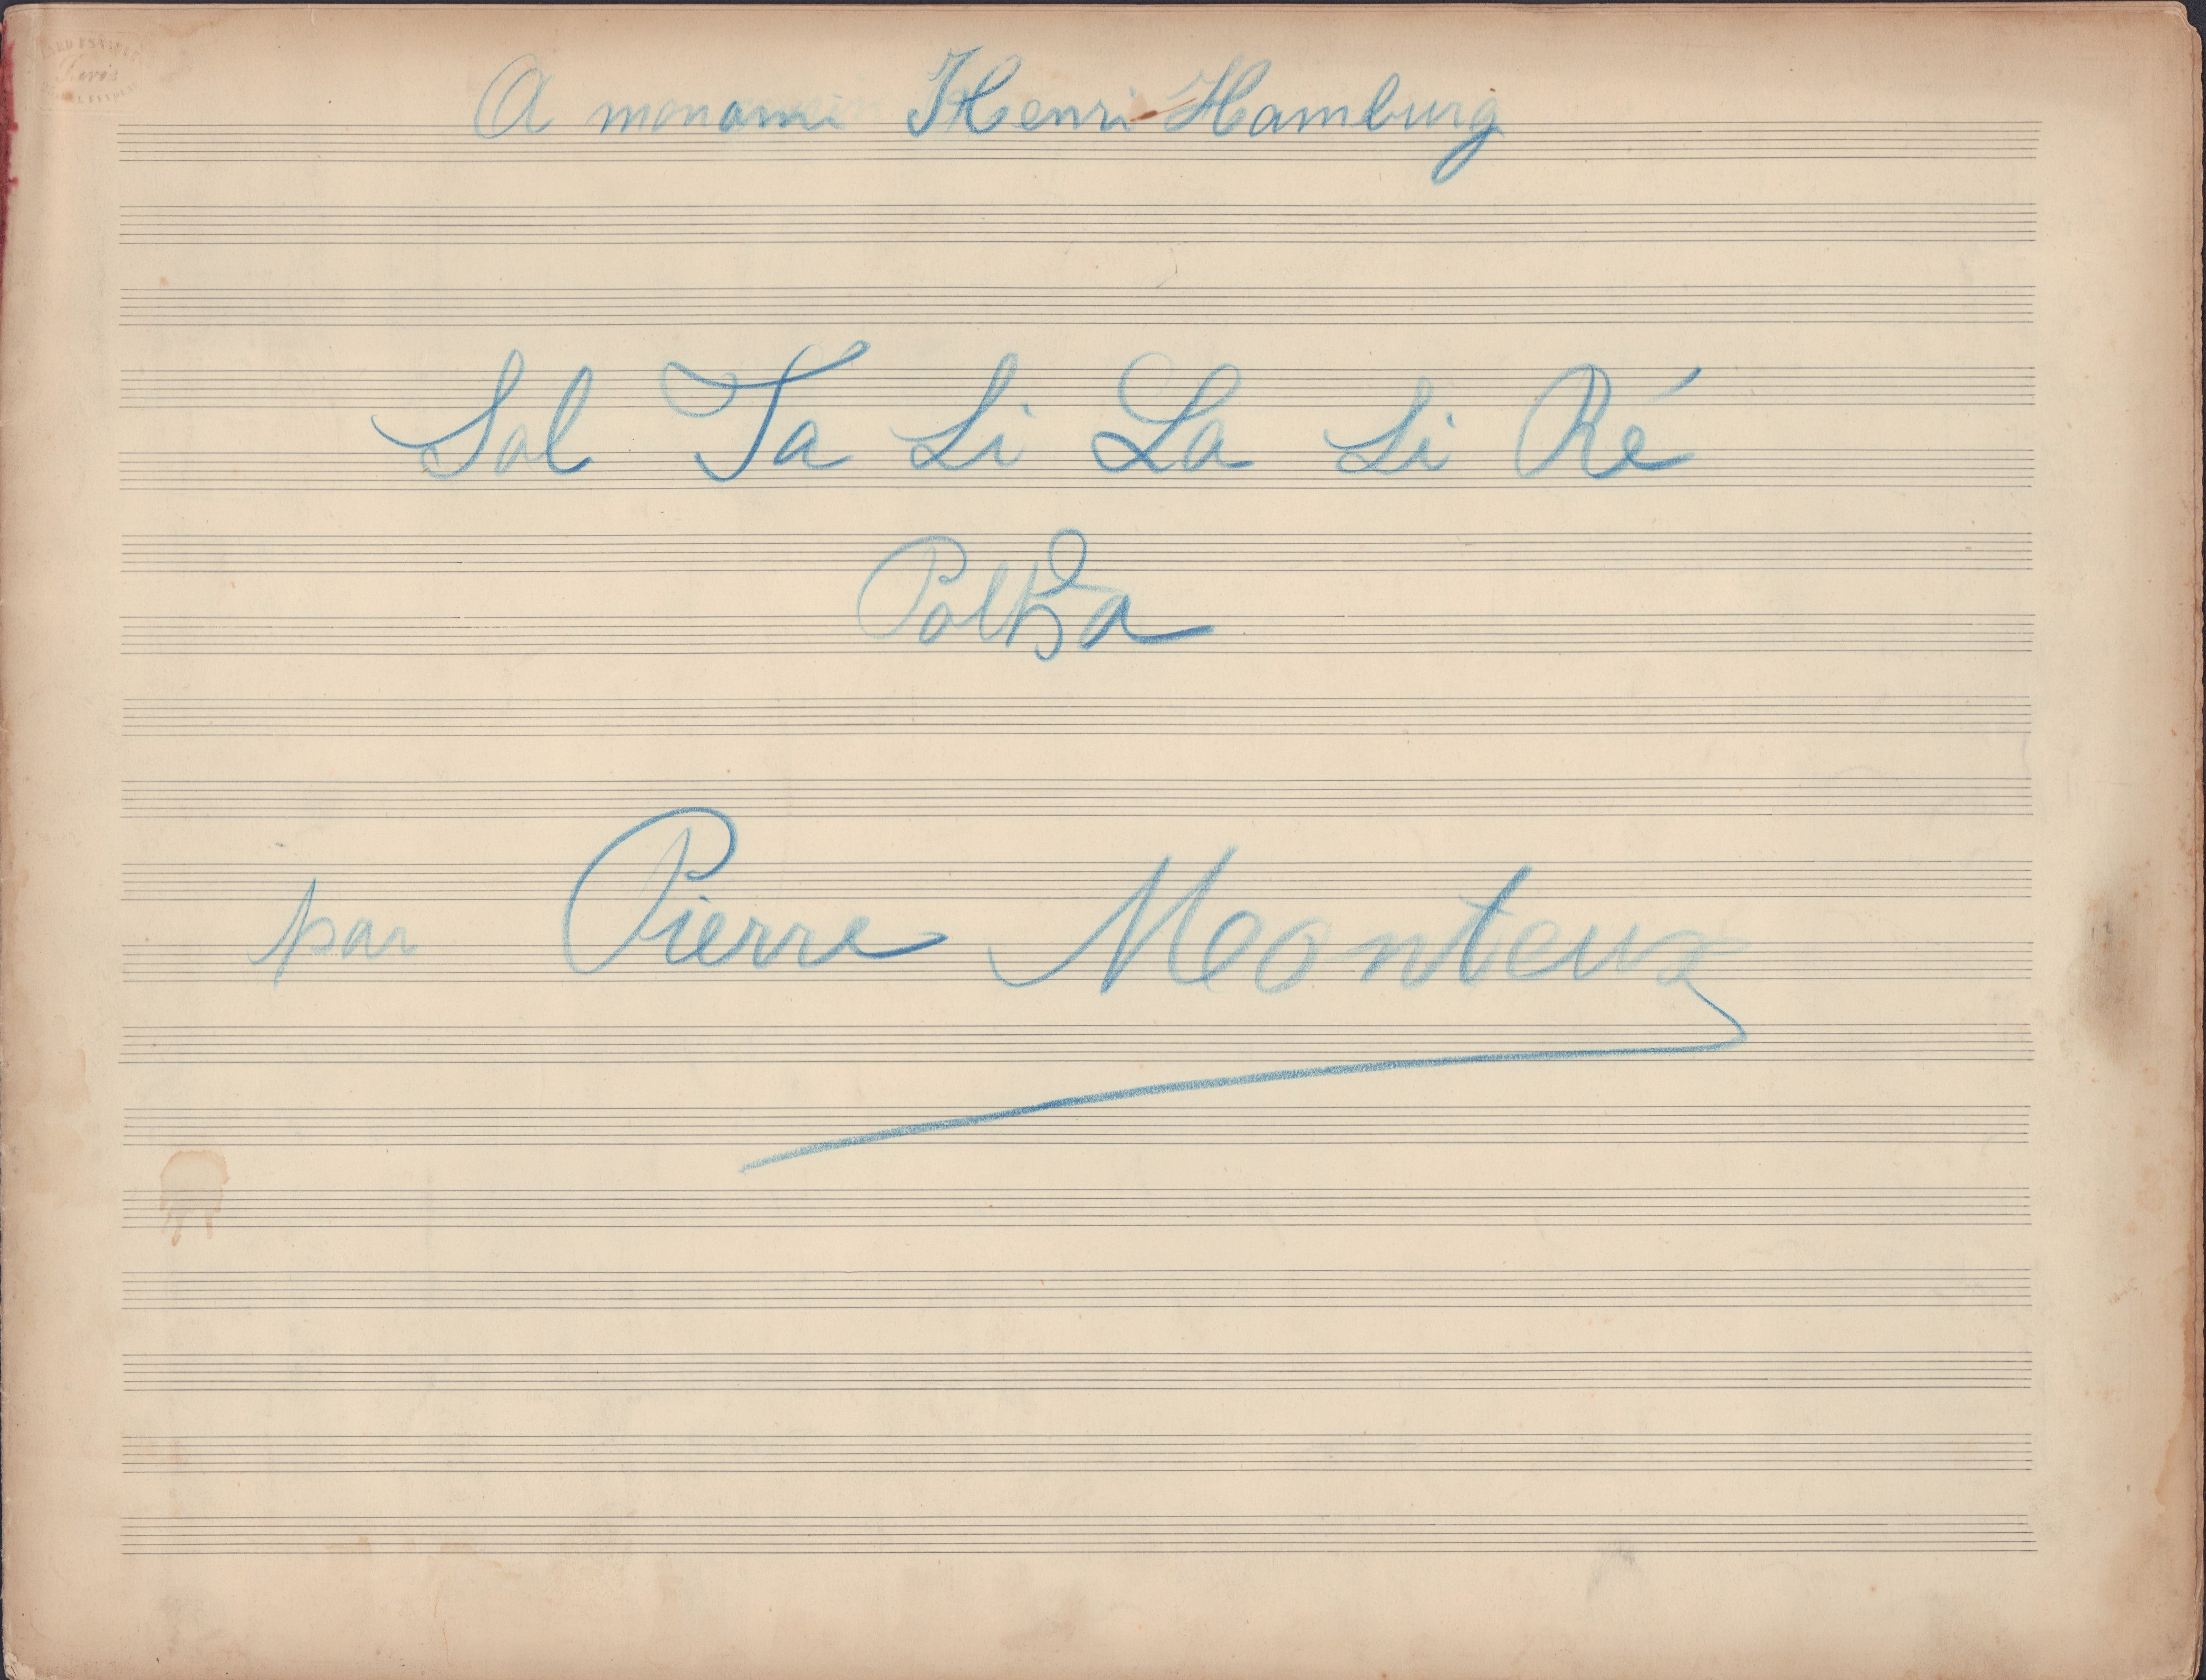 LARD ESNAULT
Paris
A mon ami Henri Hamburg
Sol Fa Si La Si Ré
Polka
par Pierre Monteux